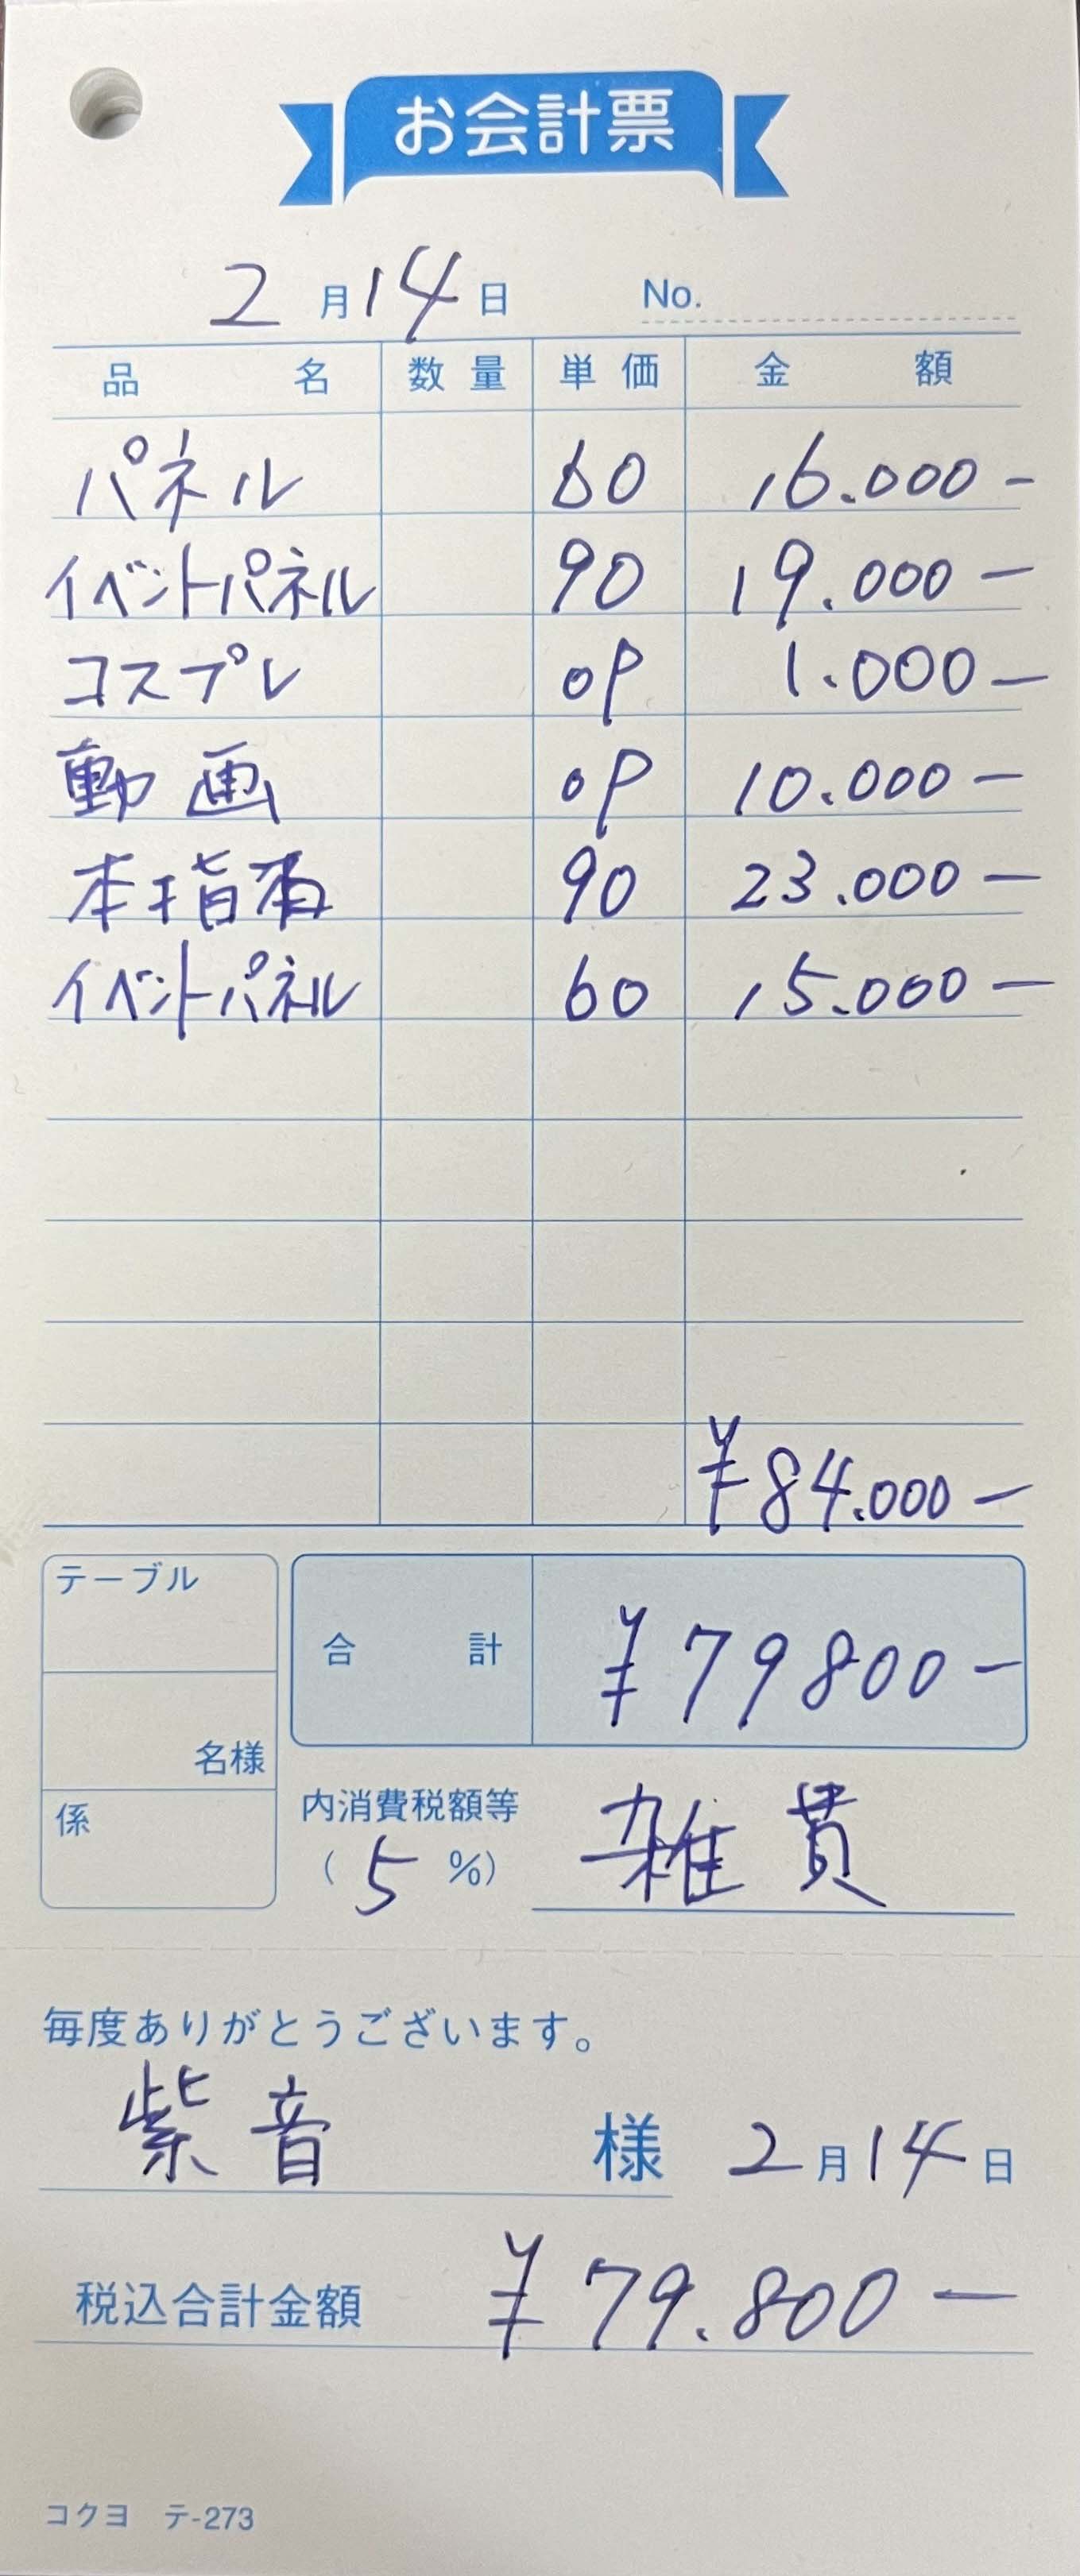 お会計票
2月14日 No.
品名 数量 単価 金額
パネル 60 16.000-
イベントパネル 90 19.000-
コスプレ op 1.000-
動画 op 10.000-
本指名 90 23.000-
イベントパネル 60 15.000-
¥84.000-
テーブル
合計 ¥79800-
名様
係
内消費税額等
(5%) 雑費
毎度ありがとうございます。
紫音 様 2月14日
税込合計金額 ¥79.800-
コクヨ テ-273